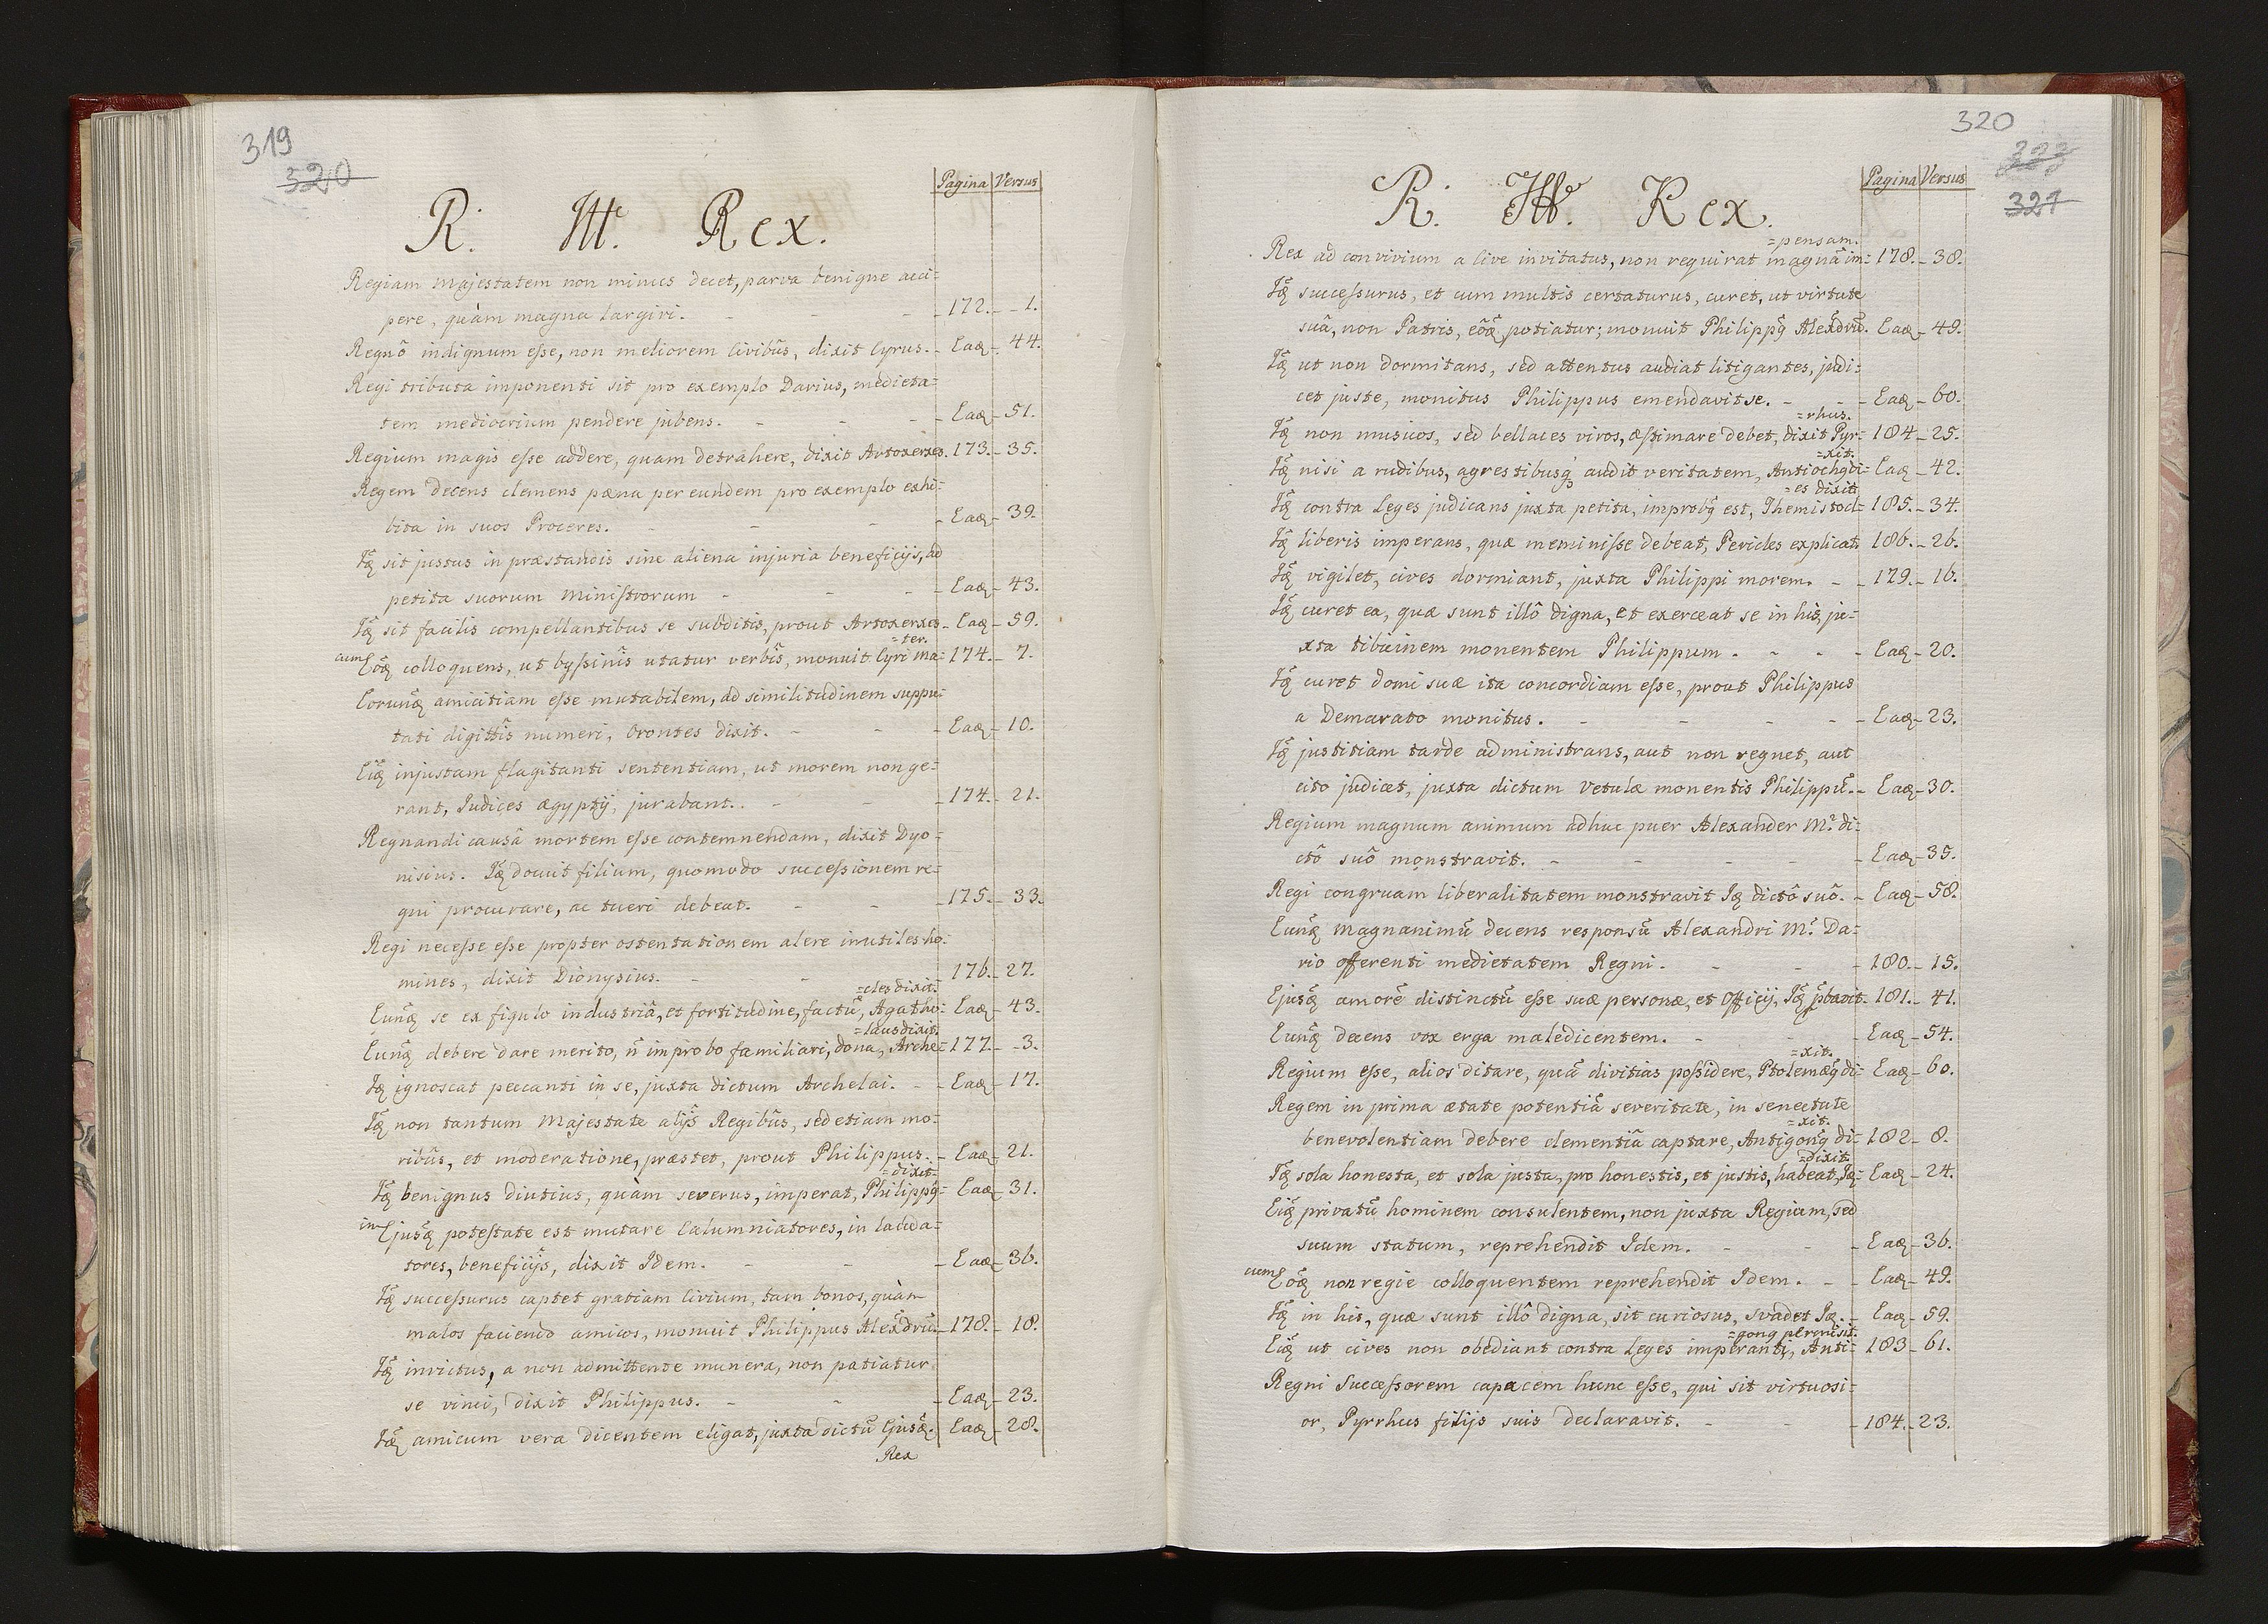 319
320
Pagina Versus
R. III. Rex.
Regiam Majestatem non minus decet, parva benigne acci=
pere, quàm magna largiri. - 172. - 1.
Regnô indignum esse, non meliorem Civibûs, dixit Cyrus. - Eaq - 44.
Regi tributa imponenti sit pro exemplo Darius, medieta=
tem mediocrium pendere jubens. - Eaq - 51.
Regium magis esse addere, quam detrahere, dixit Artoxerxes. 173. - 35.
Regem decens clemens pæna per eundem pro exemplo exhi=
bita in suos Proceres. - Eaq - 39.
Iq̃ sit justus in præstandis sine aliena injuria beneficijs, ad
petita suorum Ministrorum - Eaq - 43.
Iq̃ sit facilis compellantibus se subditis, prout Artoxerxes - Eaq - 59.
=ter.
cum Eõq colloquens, ut byssinîs utatur verbîs, monuit Cyri ma= 174. - 7.
Eorunq̃ amicitiam esse mutabilem, ad similitudinem suppu=
tati digittîs numeri, Orontes dixit. - Eaq - 10.
Eiq̃ injustam flagitanti sententiam, ut morem non ge=
rant, Judices Ægyptij, jurabant. - 174. - 21.
Regnandi causâ mortem esse contemnendam, dixit Dyo=
nisius. Iq̃ docuit filium, quomodo successionem re=
gni procurare, ac tueri debeat. - 175. - 33.
Regi necesse esse propter ostentationem alere inutiles ho=
mines, dixit Dionysius. - 176. - 27.
=cles dixit.
Eunq̃ se ex figulo industriâ, et fortitudine, factũ, Agatho= Eaq - 43.
=laus dixit.
Eunq̃ debere dare merito, ñ improbo familiari, dona, Arche= 177. - 3.
Iq̃ ignoscat peccanti in se, juxta dictum Archelai. - Eaq - 17.
Iq̃ non tantum Majestate alijs Regibûs, sed etiam mo=
ribûs, et moderatione, præstet, prout Philippus. - Eaq - 21.
=dixit
Iq̃ benignus diutius, quàm severus, imperat, Philippq̃= Eaq - 31.
in Ejusq̃ potestate est mutare Calumniatores, in lauda=
tores, beneficijs, dixit Idem. - Eaq - 36.
Iq̃ successurus captet gratiam Civium, tam bonos, quàm
malos faciendo amicos, monuit Philippus Alexãdrũ. - 178. - 18.
Iq̃ invictus, a non admittente munera, non patiatur
se vinci, dixit Philippus. - Eaq - 23.
Iq̃ amicum vera dicentem eligat, juxta dictũ Ejusq̃. Eaq - 28.
Rex
320
327
Pagina Versus
R. III. Rex.
=pensam.
Rex ad convivium a Cive invitatus, non requirat magnã im= 178. - 38.
Iq̃ successurus, et cum multis certaturus, curet, ut virtute
suâ, non Patris, eõq̃ potiatur; monuit Philippq̃ Alexãdrũ. Eaq - 49.
Iq̃ ut non dormitans, sed attentus audiat litigantes, judi=
cet juste, monitus Philippus emendavit se. - Eaq - 60.
=rhus.
Iq̃ non musicos, sed bellaces viros, æstimare debet, dixit Pyr= 184 - 25.
=xit.
Iq̃ nisi a rudibus, agrestibusq̃ audit veritatem, Antiochq̃ di= Eaq - 42.
=es dixit
Iq̃ contra Leges judicans juxta petita, improbq̃ est, Themistocl= 185. - 34.
Iq̃ liberis imperans, quæ meminisse debeat, Pericles explicat. 186. - 26.
Iq̃ vigilet, cives dormiant, juxta Philippi morem. - 179. - 16.
Iq̃ curet ea, quæ sunt illô digna, et exerceat se in his, ju=
xta tibicinem monentem Philippum. - Eaq - 20.
Iq̃ curet domi suæ ita concordiam esse, prout Philippus
a Demarato monitus. - Eaq - 23.
Iq̃ justitiam tarde administrans, aut non regnet, aut
cito judicet, juxta dictum vetulæ monentis Philippũ. - Eaq - 30.
Regium magnum animum adhuc puer Alexander M. di=
ctô suô monstravit. - Eaq - 35.
Regi congruam liberalitatem monstravit Iq dictô suô. - Eaq - 58.
Eunq̃ magnanimũ decens responsũ Alexandri M. Da=
rio offerenti medietatem Regni. - 180. - 15.
Ejusq̃ amorẽ distinctũ esse suæ personæ, et Officij, Iq̃ pbavit. 181. - 41.
Eunq̃ decens vox erga maledicentem. - Eaq - 54.
=xit.
Regium esse, alios ditare, quã divitias possidere, Ptolemæq̃ di= Eaq - 60.
Regem in prima ætate potentiâ severitate, in senectute
=xit.
benevolentiam debere clementiâ captare, Antigonq̃ di= 182 - 8.
=dixit
Iq̃ sola honesta, et sola justa, pro honestis, et justis, habeat, Iq= Eaq - 24.
Eiq̃ privatũ hominem consulentem, non juxta Regium, sed
suum statum, reprehendit Idem. - Eaq - 36.
cum Eõq̃ non regie colloquentem reprehendit Idem. - Eaq - 49.
Iq̃ in his, quæ sunt illô digna, sit curiosus, svadet Iq. - Eaq - 59.
=gonq permisit.
Eiq̃ ut cives non obediant contra Leges imperanti, Anti= 183 - 61.
Regni Successorem capacem hunc esse, qui sit virtuosi=
or, Pyrrhus filijs suis declaravit. - 184. - 23.